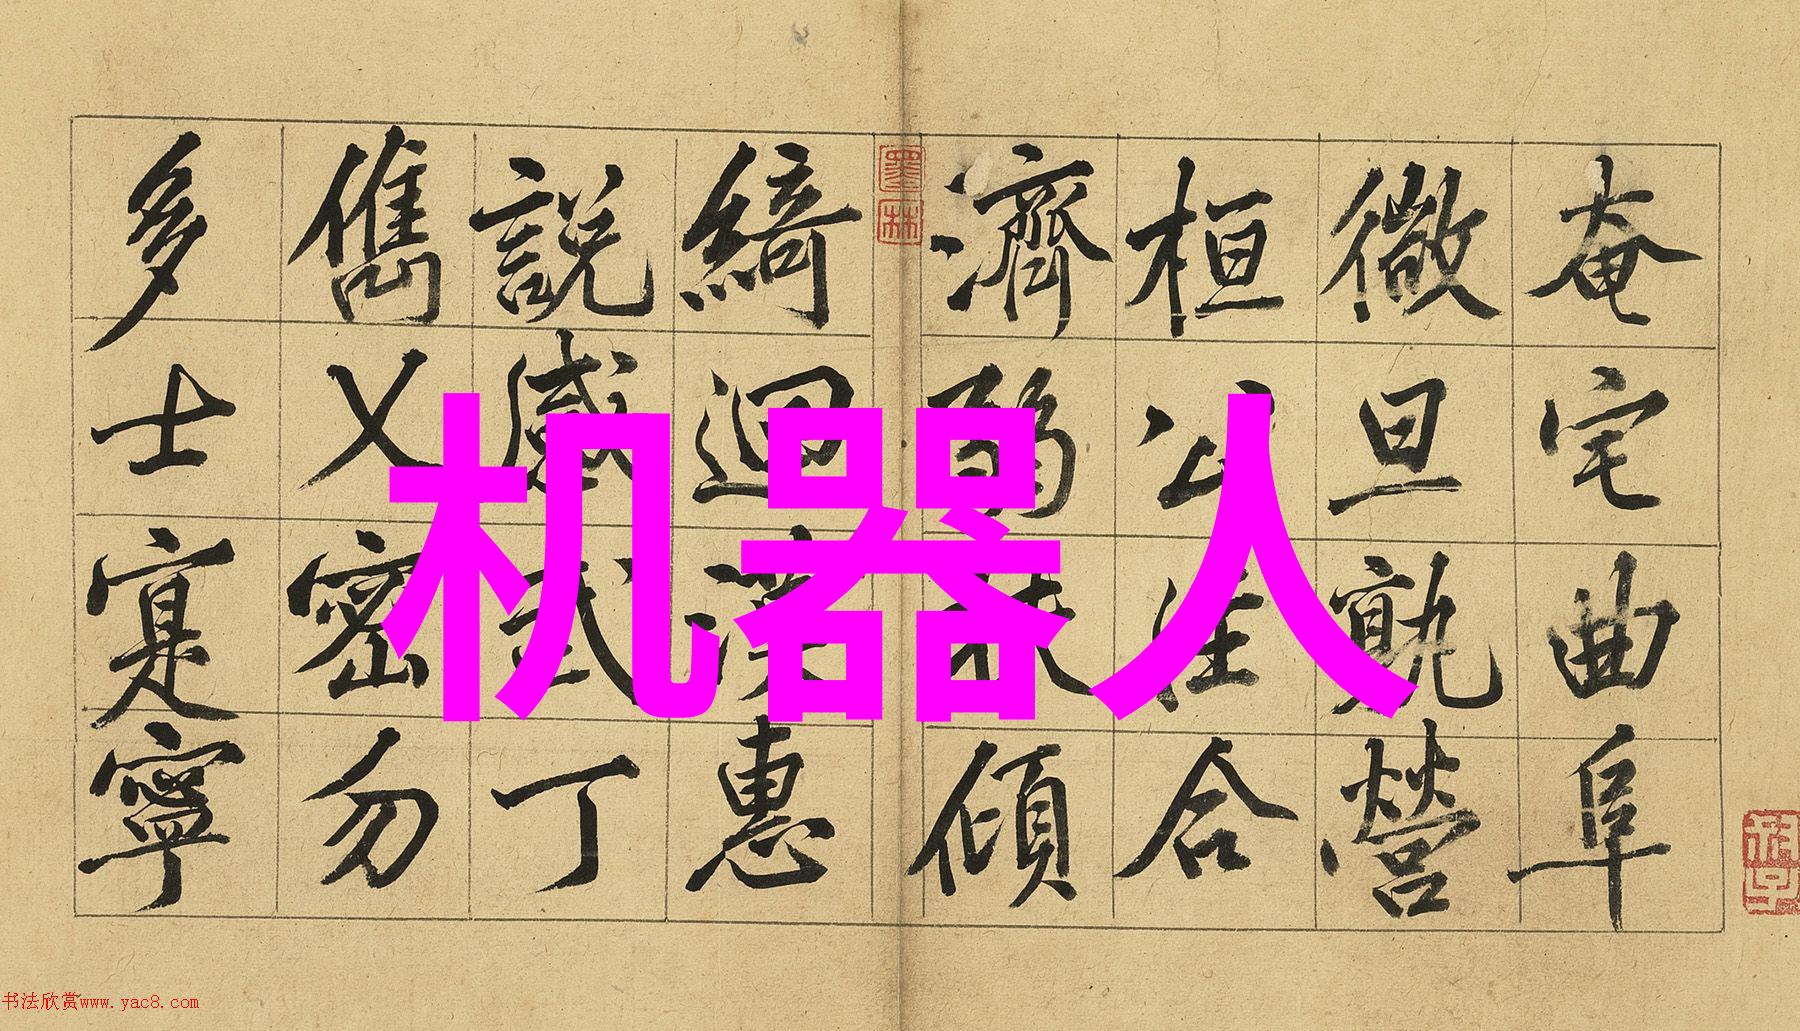 奄宅曲阜
微旦孰營
桓公匡合
濟弱扶傾
綺迴漢惠
説感武丁
俊乂密勿
多士寔寧
机器人
墨林
书法欣赏www.yac8.com